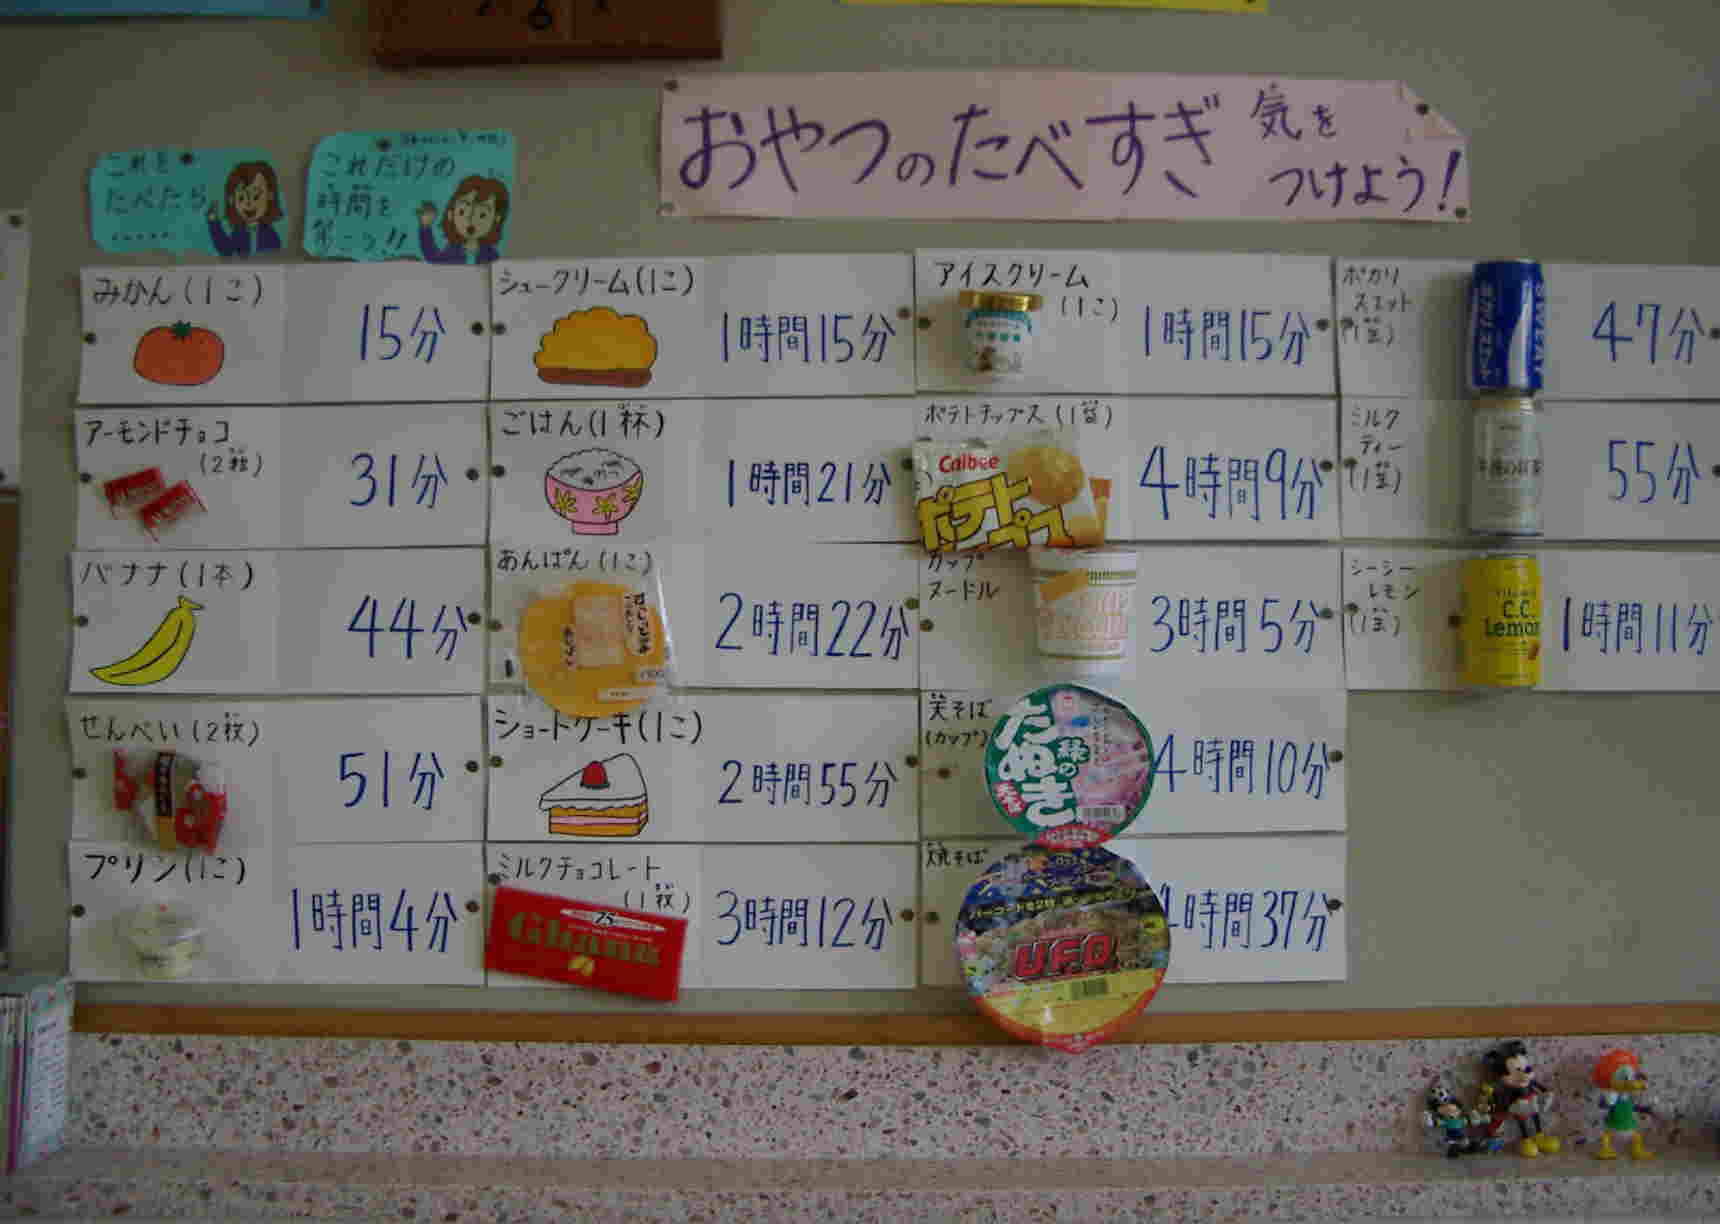 おやつのたべすぎ 気を
つけよう!
これを
たべたら
.....
これだけの
時間を
歩こう!!
みかん(1こ)
15分
アーモンドチョコ
(2粒)
31分
バナナ(1本)
44分
せんべい(2枚)
51分
プリン(1こ)
1時間4分
シュークリーム(1こ)
1時間15分
ごはん(1杯)
1時間21分
あんぱん(1こ)
2時間22分
ショートケーキ(1こ)
2時間55分
ミルクチョコレート
(1枚)
Ghana
3時間12分
アイスクリーム
(1こ)
1時間15分
ポテトチップス(1袋)
Calbee
ポテト
4時間9分
カップ
ヌードル
3時間5分
天そば
(カップ)
緑の
たぬき
4時間10分
焼そば
U.F.O.
4時間37分
ポカリ
スエット
(1缶)
47分
ミルク
ティー
(1缶)
午後の紅茶
55分
シーシー
レモン
(1缶)
C.C.
Lemon
1時間11分